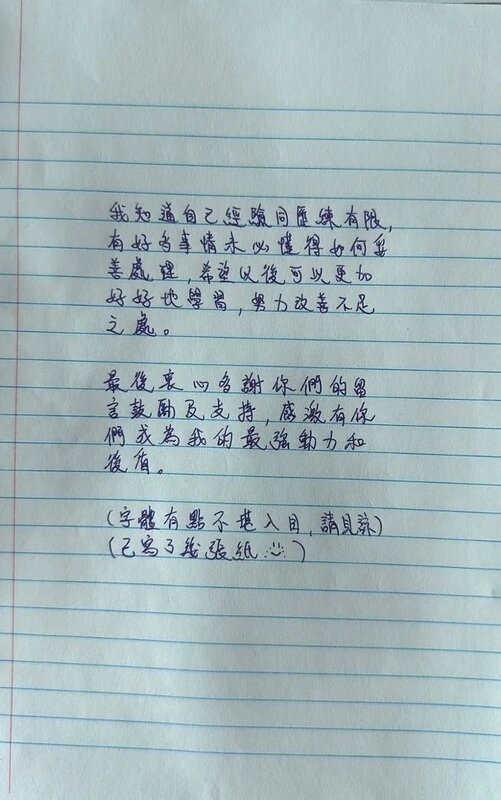 我知道自己經驗同歷練有限，
有好多事情未必懂得如何妥
善處理，希望以後可以更加
好好地學習，努力改善不足
之處。
最後衷心多謝你們的留
言鼓勵及支持，感激有你
們成為我的最強動力和
後盾。
（字體有點不堪入目，請見諒）
（已寫了幾張紙☺）